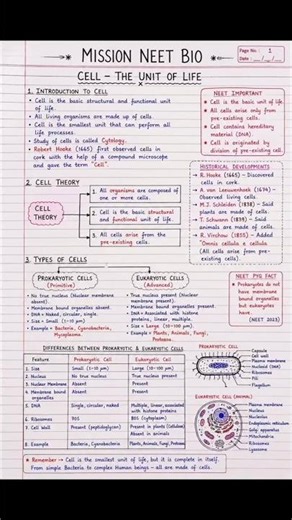 Page No. : 1
Date : __/__/__
MISSION NEET BIO
CELL – THE UNIT OF LIFE
1. INTRODUCTION TO CELL
• Cell is the basic structural and functional unit
of life.
• All living organisms are made up of cells.
• Cell is the smallest unit that can perform all
life processes.
• Study of cells is called Cytology.
• Robert Hooke (1665) first observed cells in
cork with the help of a compound microscope
and gave the term "Cell".
NEET IMPORTANT
Cell is the basic unit of life
All cells arise only from
pre-existing cells.
Cell contains hereditary
material (DNA)
Cell is originated by
division of pre-existing cell.
HISTORICAL DEVELOPMENTS
→ R. Hooke (1665) – Discovered
cells in cork.
→ A. van Leeuwenhoek (1674) –
Observed living cells.
→ M.J. Schleiden (1838) – Said
plants are made of cells.
→ T. Schwann (1839) – Said
animals are made of cells.
→ R. Virchow (1855) – Added
"Omnis cellula e cellula"
(All cells arise from pre-
existing cells)
2. CELL THEORY
CELL
THEORY
1. All organisms are composed of
one or more cells.
2. Cell is the basic structural and
functional unit of life.
3. All cells arise from the
pre-existing cells.
3. TYPES OF CELLS
PROKARYOTIC CELLS
(Primitive)
• No true nucleus (Nuclear membrane
absent).
• Membrane bound organelles absent.
• DNA – Naked, circular, single.
• Size – Small (1-10 μm)
• Example – Bacteria, Cyanobacteria,
Mycoplasma.
EUKARYOTIC CELLS
(Advanced)
• True nucleus present (Nuclear
membrane present).
• Membrane bound organelles present.
• DNA – Associated with histone
proteins, Linear, multiple.
• Size – Large (10-100 μm).
• Example – Plants, Animals, Fungi,
Protozoa.
NEET PYQ FACT
Prokaryotes do not
have membrane
bound organelles
but eukaryotes
have
(NEET 2023)
DIFFERENCES BETWEEN PROKARYOTIC & EUKARYOTIC CELLS
Feature Prokaryotic Cell Eukaryotic Cell
1. Size Small (1-10 μm) Large (10-100 μm)
2. Nucleus No true nucleus True nucleus present
3. Nuclear Membrane Absent Present
4. Membrane bound Absent Present
organelles
5. DNA Single, circular, naked Multiple, linear, associated
with histone proteins
6. Ribosomes 70S 80S (cytoplasm)
7. Cell Wall Present (peptidoglycan) Present in plants (cellulose)
Absent in animals
8. Example Bacteria, Cyanobacteria Plants, Animals, Fungi, Protozoa
PROKARYOTIC CELL
Capsule
Cell wall
Plasma membrane
Nucleoid (DNA)
Ribosomes
Pili
Flagellum
EUKARYOTIC CELL (ANIMAL)
Plasma membrane
Nucleus
Nucleolus
Endoplasmic reticulum
Golgi apparatus
Mitochondria
Ribosomes
Lysosome
Remember – Cell is the smallest unit of life, but it is complete in itself.
From simple Bacteria to complex Human beings – all are made of cells.